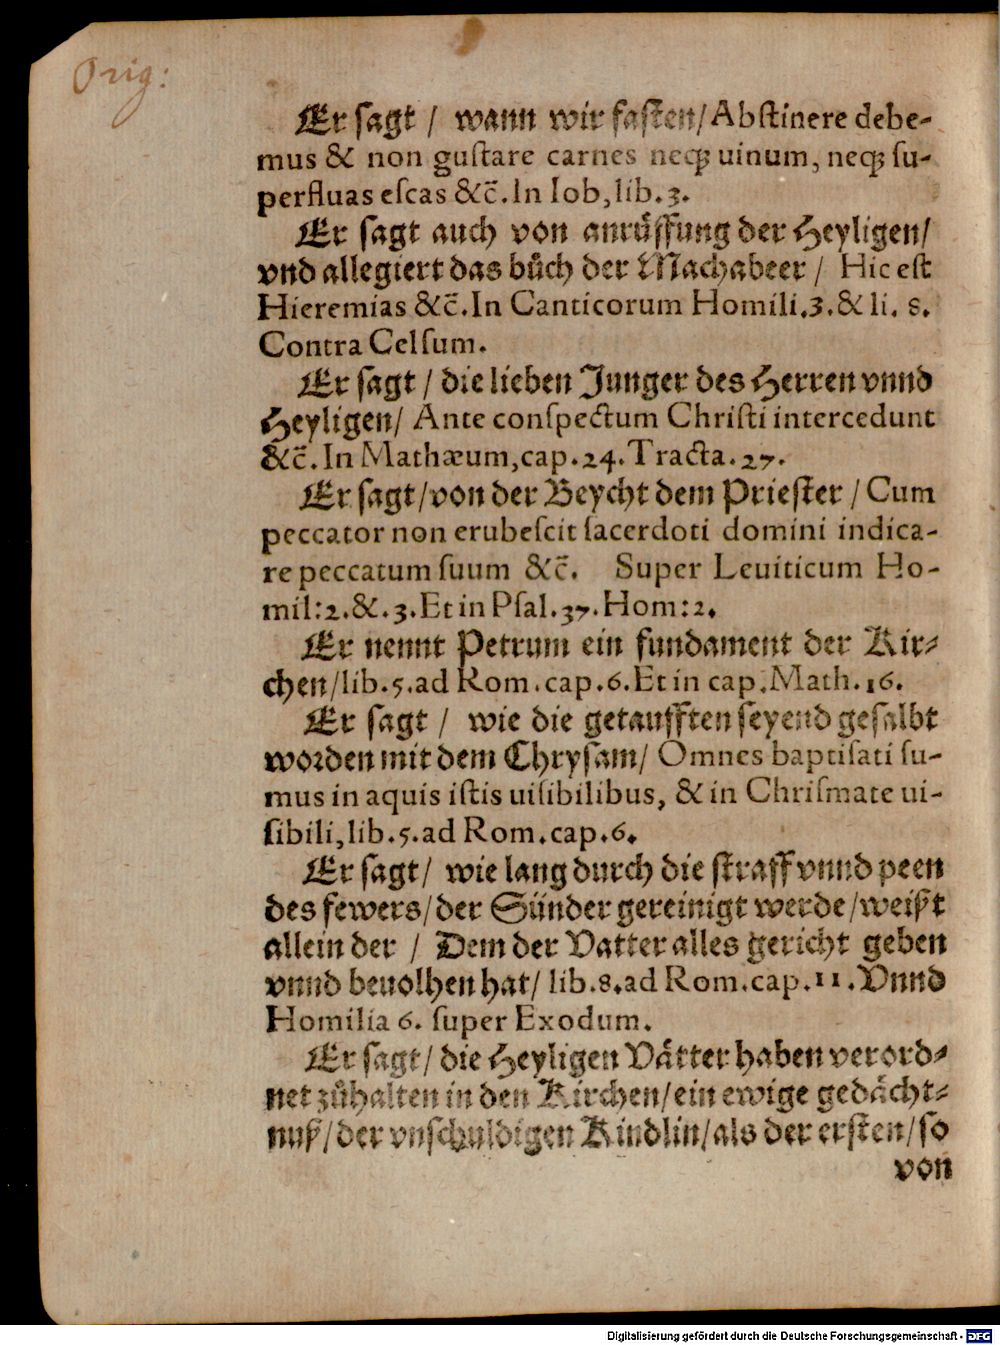 Orig:
Er ſagt / wann wir faſten/ Abſtinere debe-
mus & non guſtare carnes neqꝫ uinum, neqꝫ ſu-
perfluas eſcas &c̃. In Iob, lib. 3.
Er ſagt auch von anrůffung der Heyligen/
vnd allegiert das bůch der Machabeer / Hic eſt
Hieremias &c̃. In Canticorum Homili. 3. & li. 8.
Contra Celſum.
Er ſagt / die lieben Junger des Herren vnnd
Heyligen/ Ante conſpectum Chriſti intercedunt
&c̃. In Mathæum, cap. 24. Tracta. 27.
Er ſagt/ von der Beycht dem Prieſter / Cum
peccator non erubeſcit ſacerdoti domini indica-
re peccatum ſuum &c̃. Super Leuiticum Ho-
mil: 2. &. 3. Et in Pſal. 37. Hom: 2.
Er nennt Petrum ein fundament der Kir-
chen/ lib. 5. ad Rom. cap. 6. Et in cap. Math. 16.
Er ſagt / wie die getaufften ſeyend geſalbt
worden mit dem Chryſam/ Omnes baptiſati ſu-
mus in aquis iſtis uiſibilibus, & in Chriſmate ui-
ſibili, lib. 5. ad Rom. cap. 6.
Er ſagt/ wie lang durch die ſtraff vnnd peen
des fewers/ der Sünder gereinigt werde/ weißt
allein der / Dem der Vatter alles gericht geben
vnnd beuolhen hat/ lib. 8. ad Rom. cap. 11. Vnnd
Homilia 6. ſuper Exodum.
Er ſagt/ die Heyligen Vätter haben verord-
net zůhalten in den Kirchen/ ein ewige gedächt-
nuß/ der vnſchuldigen Kindlin/ als der erſten/ ſo
von
Digitalisierung gefördert durch die Deutsche Forschungsgemeinschaft - DFG